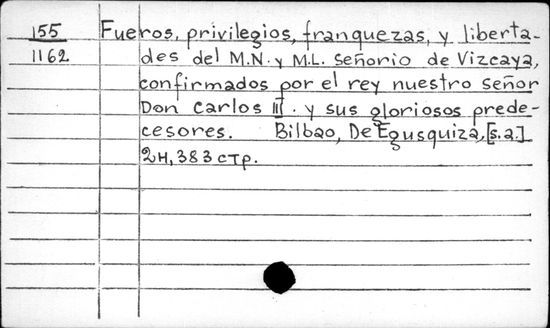 155 Fueros, privilegios, franquezas, y liberta-
1162 des del M.N. y M.L. Señorio de Vizcaya,
confirmados por el rey nuestro señor
Don Carlos III. y sus gloriosos prede-
cesores. Bilbao, De Egusquiza, [s.a.]
2н, 383 стр.